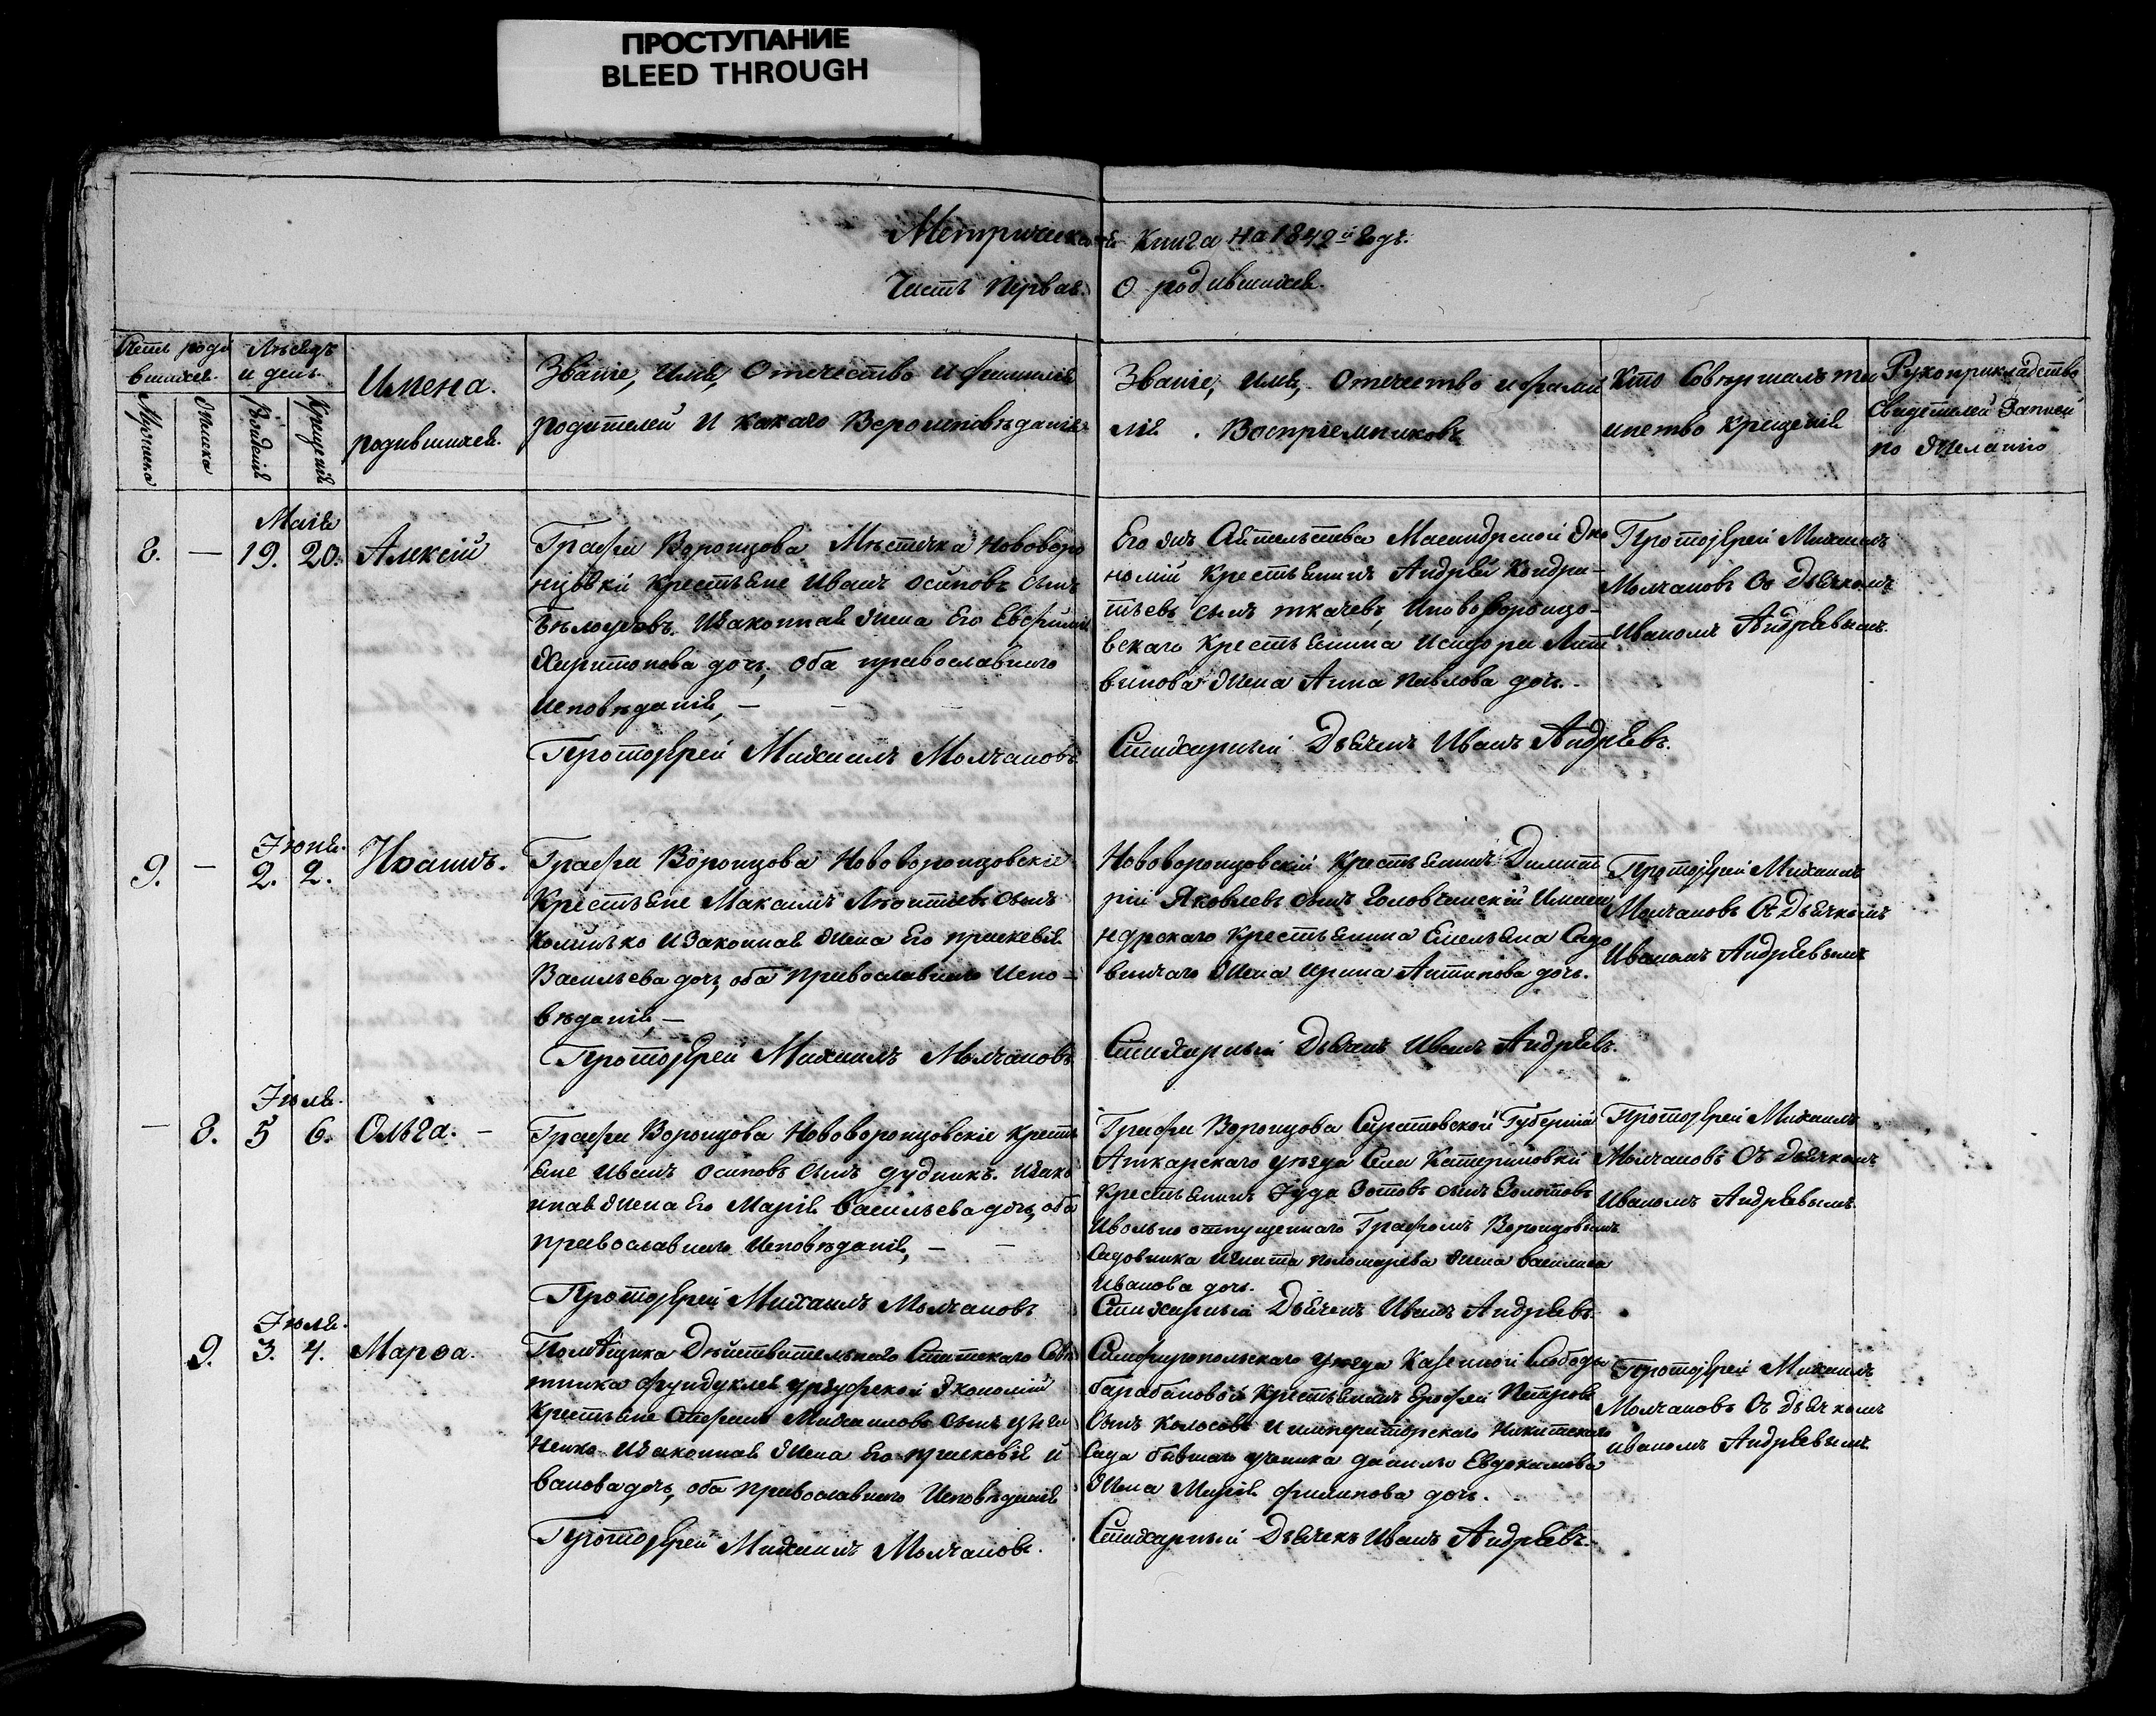 ПРОСТУПАНИЕ
BLEED THROUGH
Метрическая Книга на 1842й Годъ.
Часть Первая. О родившихся.
Счетъ роди
вшихся.
Мѣсяцъ
и день.
Мужеска
Женска
Рожденія
Крещенія
Имена.
родившихся.
Званіе, имя, Отечество и фамилія
родителей и какаго Вероисповѣданія
Званіе, имя, Отечество и фами
лія Воспріемниковъ
Кто Совершалъ та
инство крещенія
Рукоприкладство
Свидетелей Записи
по желанію
Маія
8. — 19. 20. Алексій
Графа Воронцова Мѣстечка Нововоро
нцовки крестьяне Иванъ Осиповъ сынъ
Бѣлоусовъ. Изаконная жена Его Евфимія
Харитонова дочь, оба православнаго
исповѣданія, —
Протоіерей Михаилъ Молчановъ
Его жъ Сіятельства Масандрской Эко
номіи Крестьянинъ Андрей Кондра-
тьевъ сынъ ткачевъ, Инововоронцо-
вскаго Крестьянина Исидора Лит
винова жена Анна Павлова дочь.
Стихарный Дьячекъ Иванъ Андреевъ.
Протоіерей Михаилъ
Молчановъ Съ Дьячкомъ
Иваномъ Андреевымъ.
Іюня.
9. — 2. 2. Иоаннъ.
Графа Воронцова Нововоронцовскіе
Крестьяне Максимъ Леонтіевъ сынъ
изаконная жена Его праскевія
Васильева дочь, оба православнаго Испо-
вѣданія, —
Протоіерей Михаилъ Молчановъ
Нововоронцовскій Крестьянинъ Димит
рій Яковлевъ сынъ Головчанскій
ндрскаго Крестьянина Емельяна Садо
вничаго жена Ирина Антипова дочь.
Стихарный Дьячекъ Иванъ Андреевъ.
Протоіерей Михаилъ
Молчановъ Съ Дьячкомъ
Иваномъ Андреевымъ
Іюля.
— 8. 5 6. Ольга. —
Графа Воронцова Нововоронцовскіе кресть
яне Иванъ Осиповъ сынъ дудникъ. Изако
нная жена Его Марія Васильева дочь, оба
православнаго Исповѣданія, —
Протоіерей Михаилъ Молчановъ
Графа Воронцова Саратовской Губерніи
Аткарскаго уѣзда Села Катериновки
Крестьянинъ Іуда Зотовъ сынъ Золотовъ
Ивольно отпущеннаго Графомъ Воронцовымъ
Садовника Пономарева жена Василиса
Иванова дочь.
Стихарный Дьячекъ Иванъ Андреевъ.
Протоіерей Михаилъ
Молчановъ Съ Дьячкомъ
Иваномъ Андреевымъ.
Іюля.
9. 3. 4. Марѳа.
Помѣщика Дѣйствительнаго Статскаго Совѣ
тника Фундуклея Экономіи
Крестьяне Стефанъ Михаиловъ сынъ
ненко Изаконная жена Его праскевія И
ванова дочь, оба православнаго Исповѣданія
Протоіерей Михаилъ Молчановъ.
Симферопольскаго уѣзда Казенной Слободы
барабановой Крестьянинъ Ерофей Петровъ
сынъ Колосовъ Иимператорскаго Никитскаго
Сада бывшаго ученика данилы Евдокимова
жена Марія филипова дочь.
Стихарный Дьячекъ Иванъ Андреевъ.
Протоіерей Михаилъ
Молчановъ Съ Дьячкомъ
иваномъ Андреевымъ